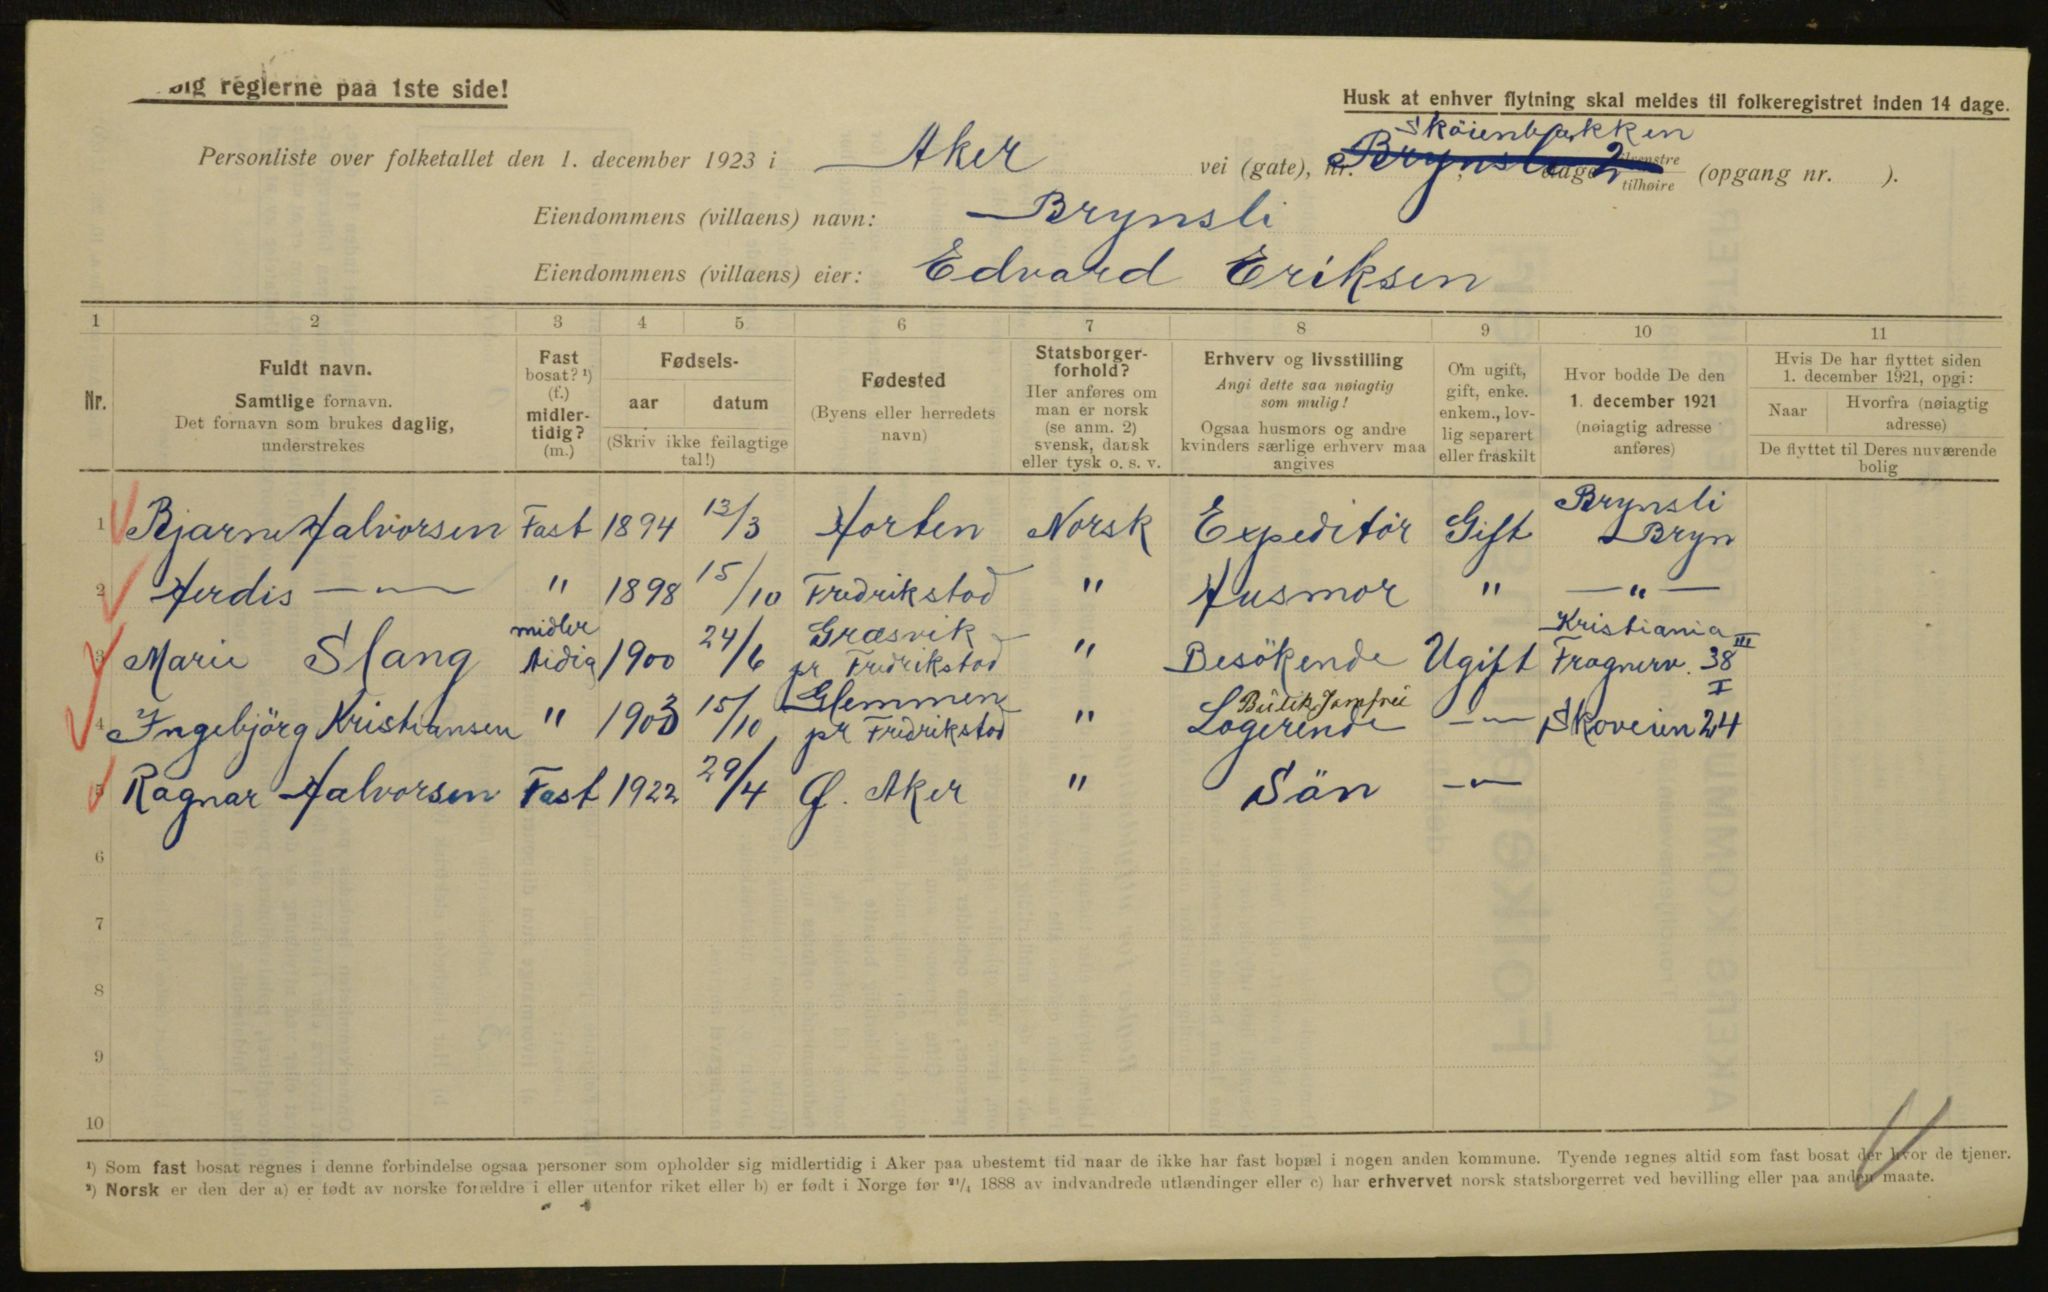 reglerne paa 1ste side!
Husk at enhver flytning skal meldes til folkeregistret inden 14 dage.
Sköienbakken
Personliste over folketallet den 1. december 1923 i Aker vei (gate), nr. Brynsli 2 etage tilvenstre tilhøire (opgang nr. ).
Eiendommens (villaens) navn: Brynsli
Eiendommens (villaens) eier: Edvard Eriksen
1 2 3 4 5 6 7 8 9 10 11
Nr.
Fuldt navn.
Samtlige fornavn.
Det fornavn som brukes daglig,
understrekes
Fast
bosat? ¹)
(f.)
midler-
tidig?
(m.)
Fødsels-
aar datum
(Skriv ikke feilagtige
tal!)
Fødested
(Byens eller herredets
navn)
Statsborger-
forhold?
Her anføres om
man er norsk
(se anm. 2)
svensk, dansk
eller tysk o. s. v.
Erhverv og livsstilling
Angi dette saa nøiagtig
som mulig!
Ogsaa husmors og andre
kvinders særlige erhverv maa
angives
Om ugift,
gift, enke.
enkem., lov-
lig separert
eller fraskilt
Hvor bodde De den
1. december 1921
(nøiagtig adresse
anføres)
Hvis De har flyttet siden
1. december 1921, opgi:
Naar
Hvorfra (nøiagtig
adresse)
De flyttet til Deres nuværende
bolig
Brynsli
1 Bjarne Halvorsen Fast 1894 13/3 Horten Norsk Expeditör Gift Bryn
2 Herdis — " — " 1898 15/10 Fredrikstad " Husmor " — " —
midler Græsvik Kristiania
3 Marie Slang tidig 1900 24/6 pr Fredrikstad " Besökende Ugift Frognerv. 38 III
Glemmen Butikjomfru I
4 Ingebjörg Kristiansen " 1903 15/10 pr Fredrikstad " Logerende — " — Skoveien 24
5 Ragnar Halvorsen Fast 1922 29/4 Ö. Aker " Sön — " —
6
7
8
9
10
¹) Som fast bosat regnes i denne forbindelse ogsaa personer som opholder sig midlertidig i Aker paa ubestemt tid naar de ikke har fast bopæl i nogen anden kommune. Tyende regnes altid som fast bosat der hvor de tjener.
²) Norsk er den der a) er født av norske forældre i eller utenfor riket eller b) er født i Norge før ²¹/₄ 1888 av indvandrede utlændinger eller c) har erhvervet norsk statsborgerret ved bevilling eller paa anden maate.